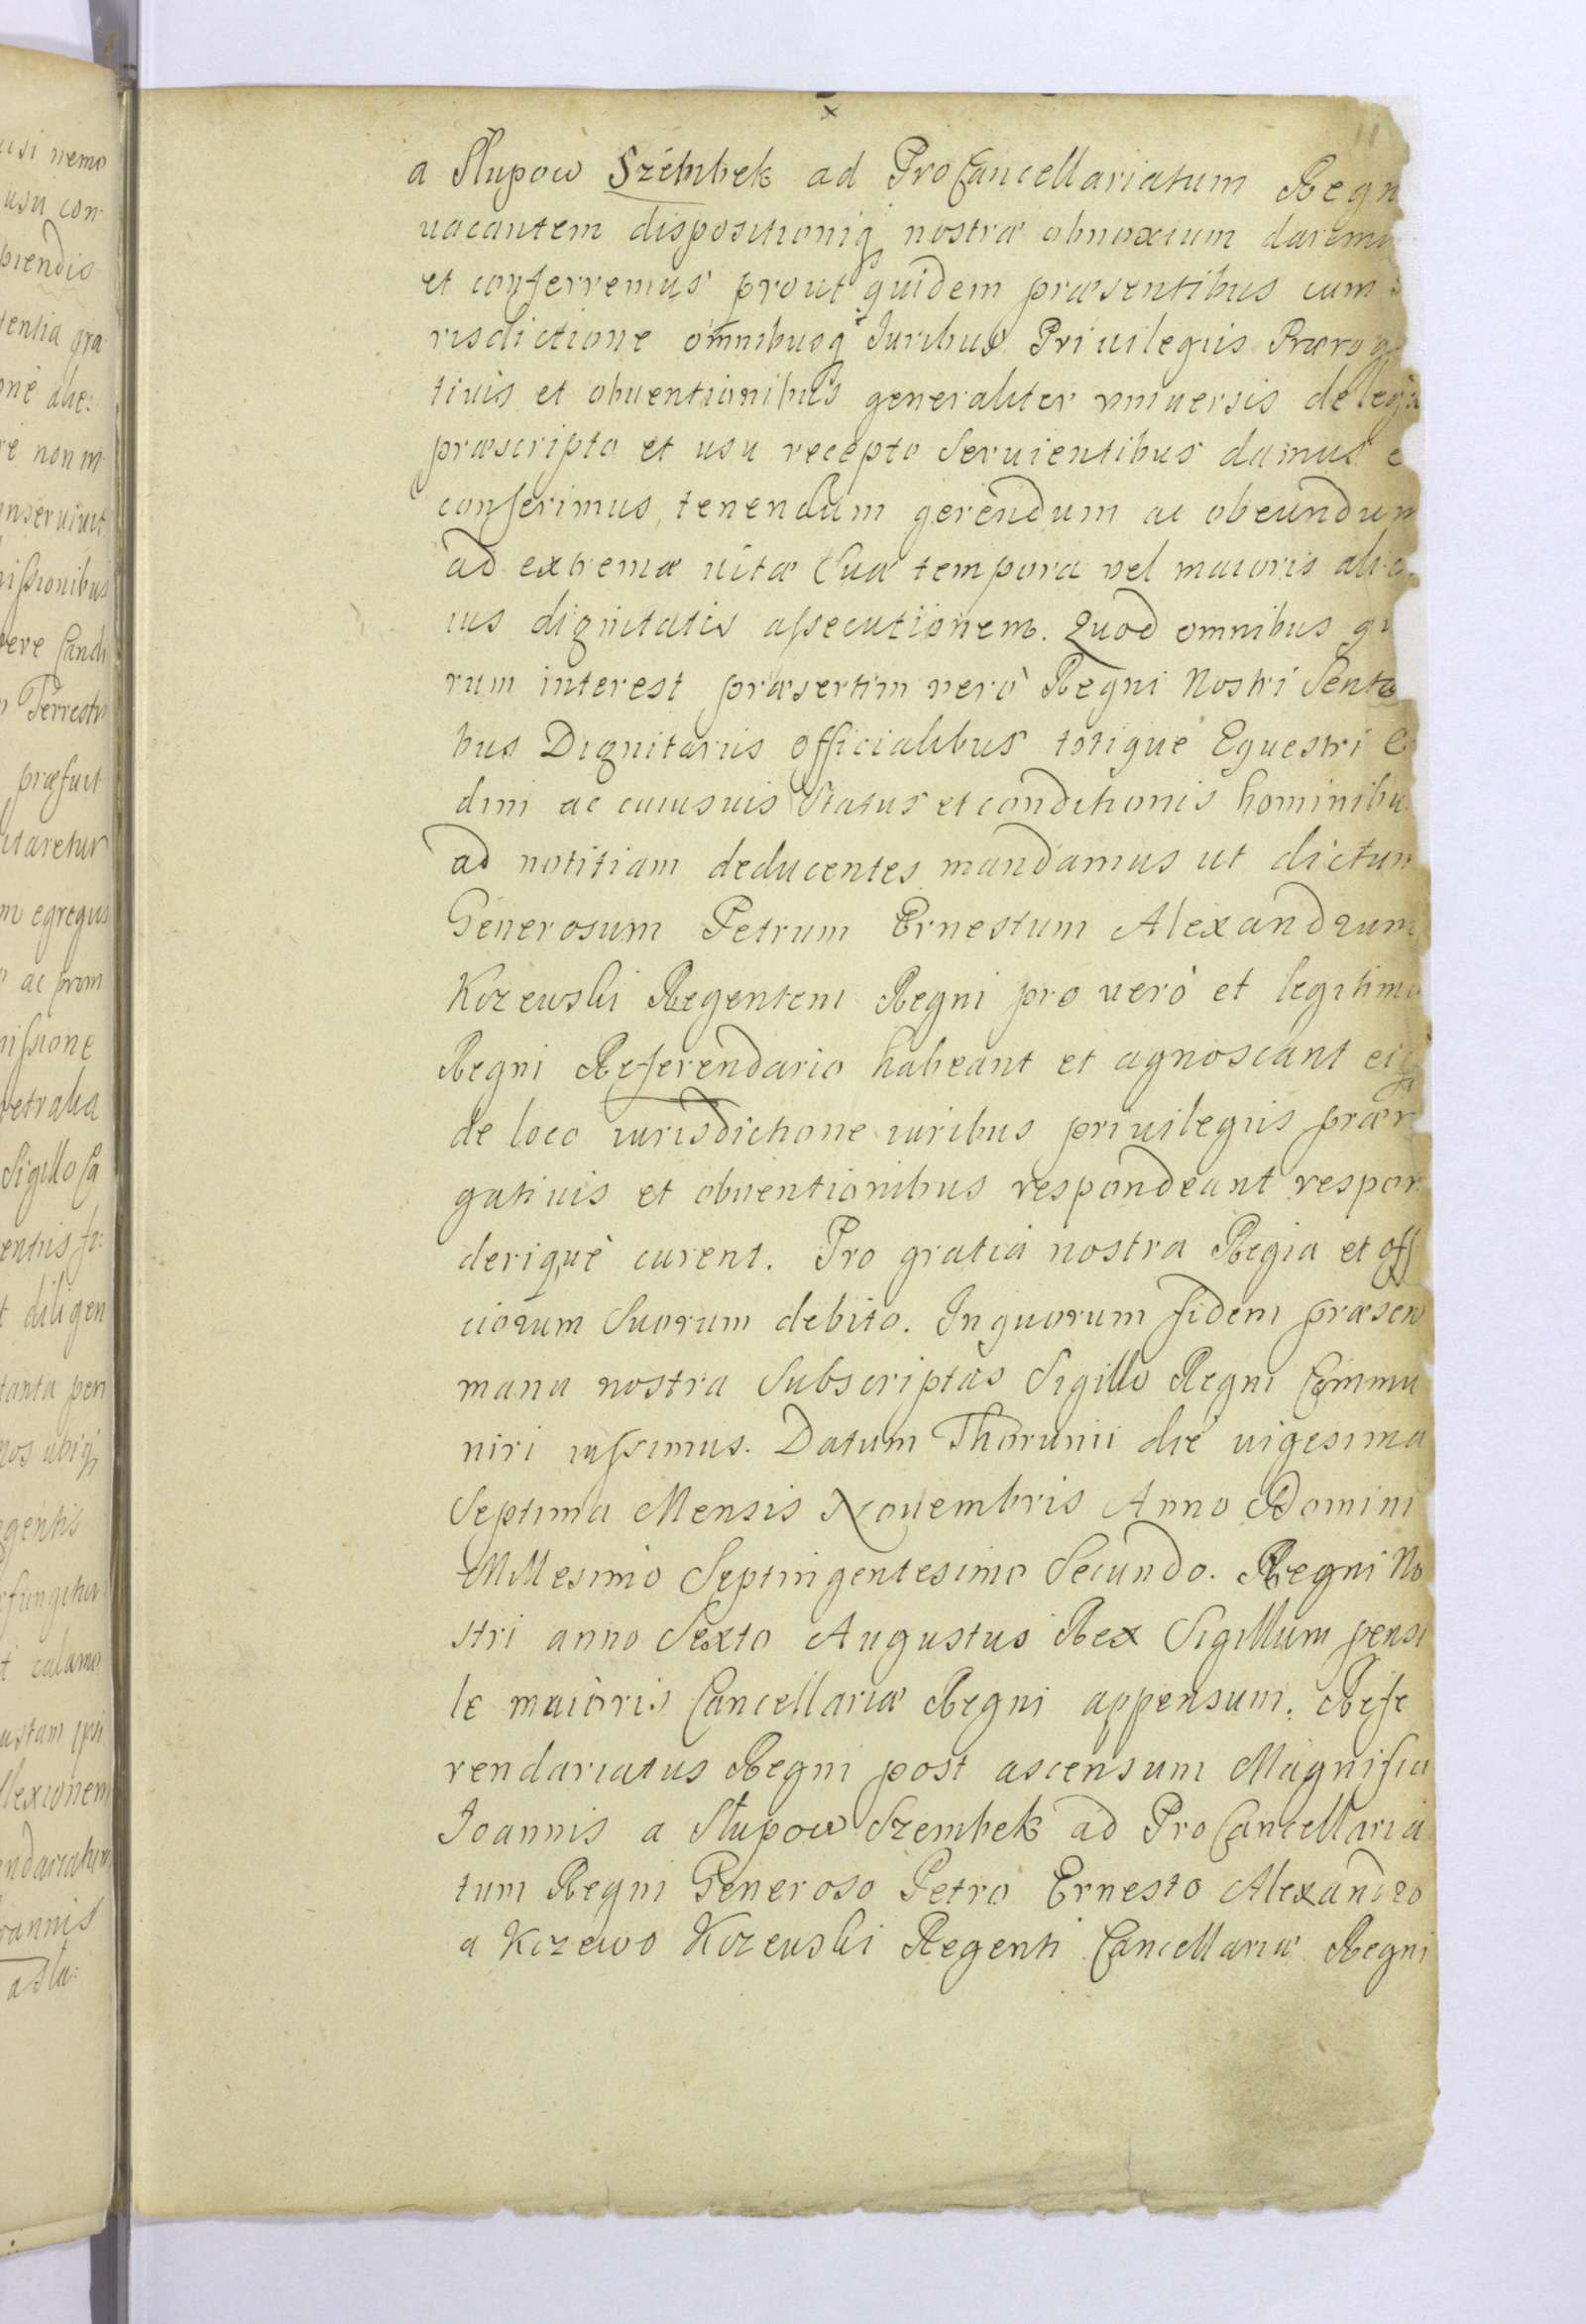 x
11
a Słupow Szémbek ad ProCancellariatum Regn
uacantem dispositioniq nostræ obnoxium daremu
et conferremus prout quidem præsentibus cum
risdictione omnibusq Iuribus Priuilegiis Prærog
tiuis et obuentionibus generaliter vniuersis de legis
præscripto et usu recepto Seruientibus damus e
conferimus, tenendum gerendum ac obeundum
ad extremæ uitæ Suæ tempora vel maioris alic
ius dignitatis assecutionem. Quod omnibus qu
rum interest præsertim verò Regni Nostri Sento
bus Dignitariis Officialibus totique Equestri
dini ac cuiusuis Status et conditionis hominibu
ad notitiam deducentes mandamus ut dictum
Generosum Petrum Ernestum Alexandrum
Kczewski Regentem Regni pro uerò et legitimo
Regni Referendario habeant et agnoscant eiq
de loco iurisdictione iuribus priuilegiis præro
gatiuis et obuentionibus respondeant respon
deriquè curent. Pro gratia nostra Regia et offi
ciorum Suorum debito. In quorum fidem præsen
manu nostra Subscriptas Sigillo Regni Commu
niri iussimus. Datum Thorunii die uigesima
Septima Mensis Nouembris Anno Domini
Millesimo Septingentesimo Secundo. Regni No
stri anno Sexto Augustus Rex Sigillum pensi
le maioris Cancellariæ Regni appensum. Refe
rendariatus Regni post ascensum Magnifici
Ioannis a Słupow Szembek ad ProCancellaria
tum Regni Generoso Petro Ernesto Alexandro
a Kczewo Kczewski Regenti Cancellariæ Regni